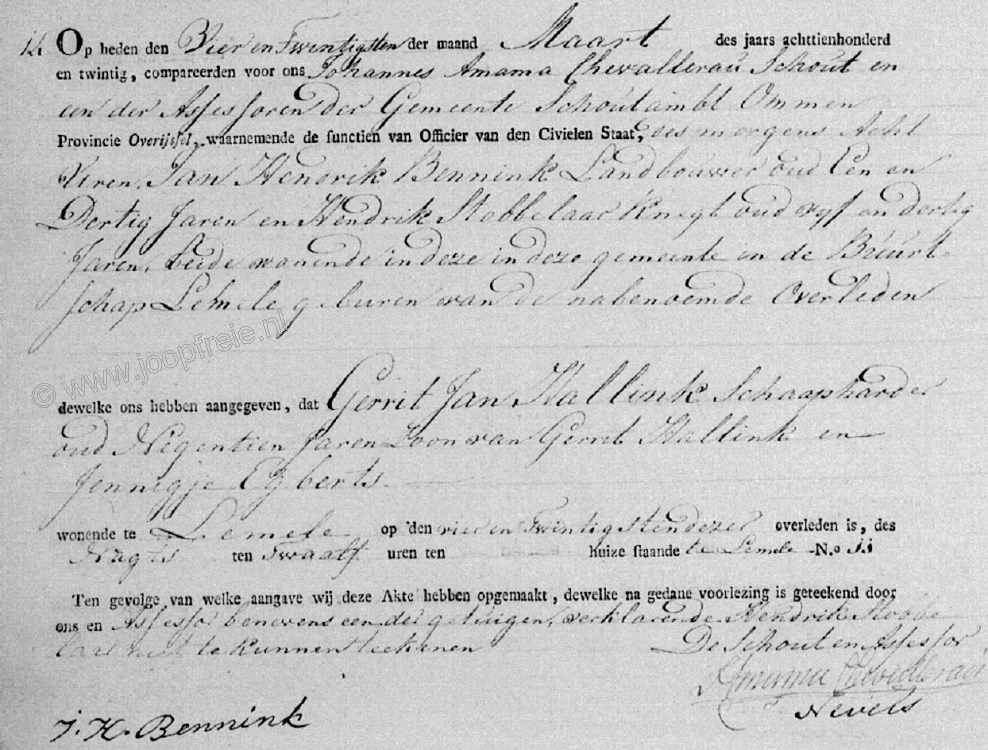 14. Op heden den Vier en Twintigsten der maand Maart des jaars achttienhonderd
en twintig, compareerden voor ons Johannes Amama Chevallerau Schout en
een der Assessoren der Gemeente Schoutambt Ommen
Provincie Overijssel, waarnemende de functien van Officier van den Civielen Staat, des morgens Acht
Uren, Jan Hendrik Bennink Landbouwer oud Een en
Dertig Jaren en Hendrik Stobbelaar Knegt oud vyf en dertig
Jaren, beide wonende in deze in deze gemeente in de Buurt-
schap Lemele geburen van de nabenoemde Overleden
© www.joopfreie.nl
dewelke ons hebben aangegeven, dat Gerrit Jan Hallink Schaapharder
oud Negentien Jaren Zoon van Gerrit Hallink en
Jennigje Egberts
wonende te Lemele op den vier en Twintigsten dezer overleden is, des
Nagts ten Twaalf uren ten huize staande te Lemele No 11
Ten gevolge van welke aangave wij deze Akte hebben opgemaakt, dewelke na gedane voorlezing is geteekend door
ons en Assessor benevens een der getuigen, verklarende Hendrik Stobbe
laar niet te kunnen teekenen De Schout en Assessor
Amama Chevallerau
Nevels
J. H. Bennink